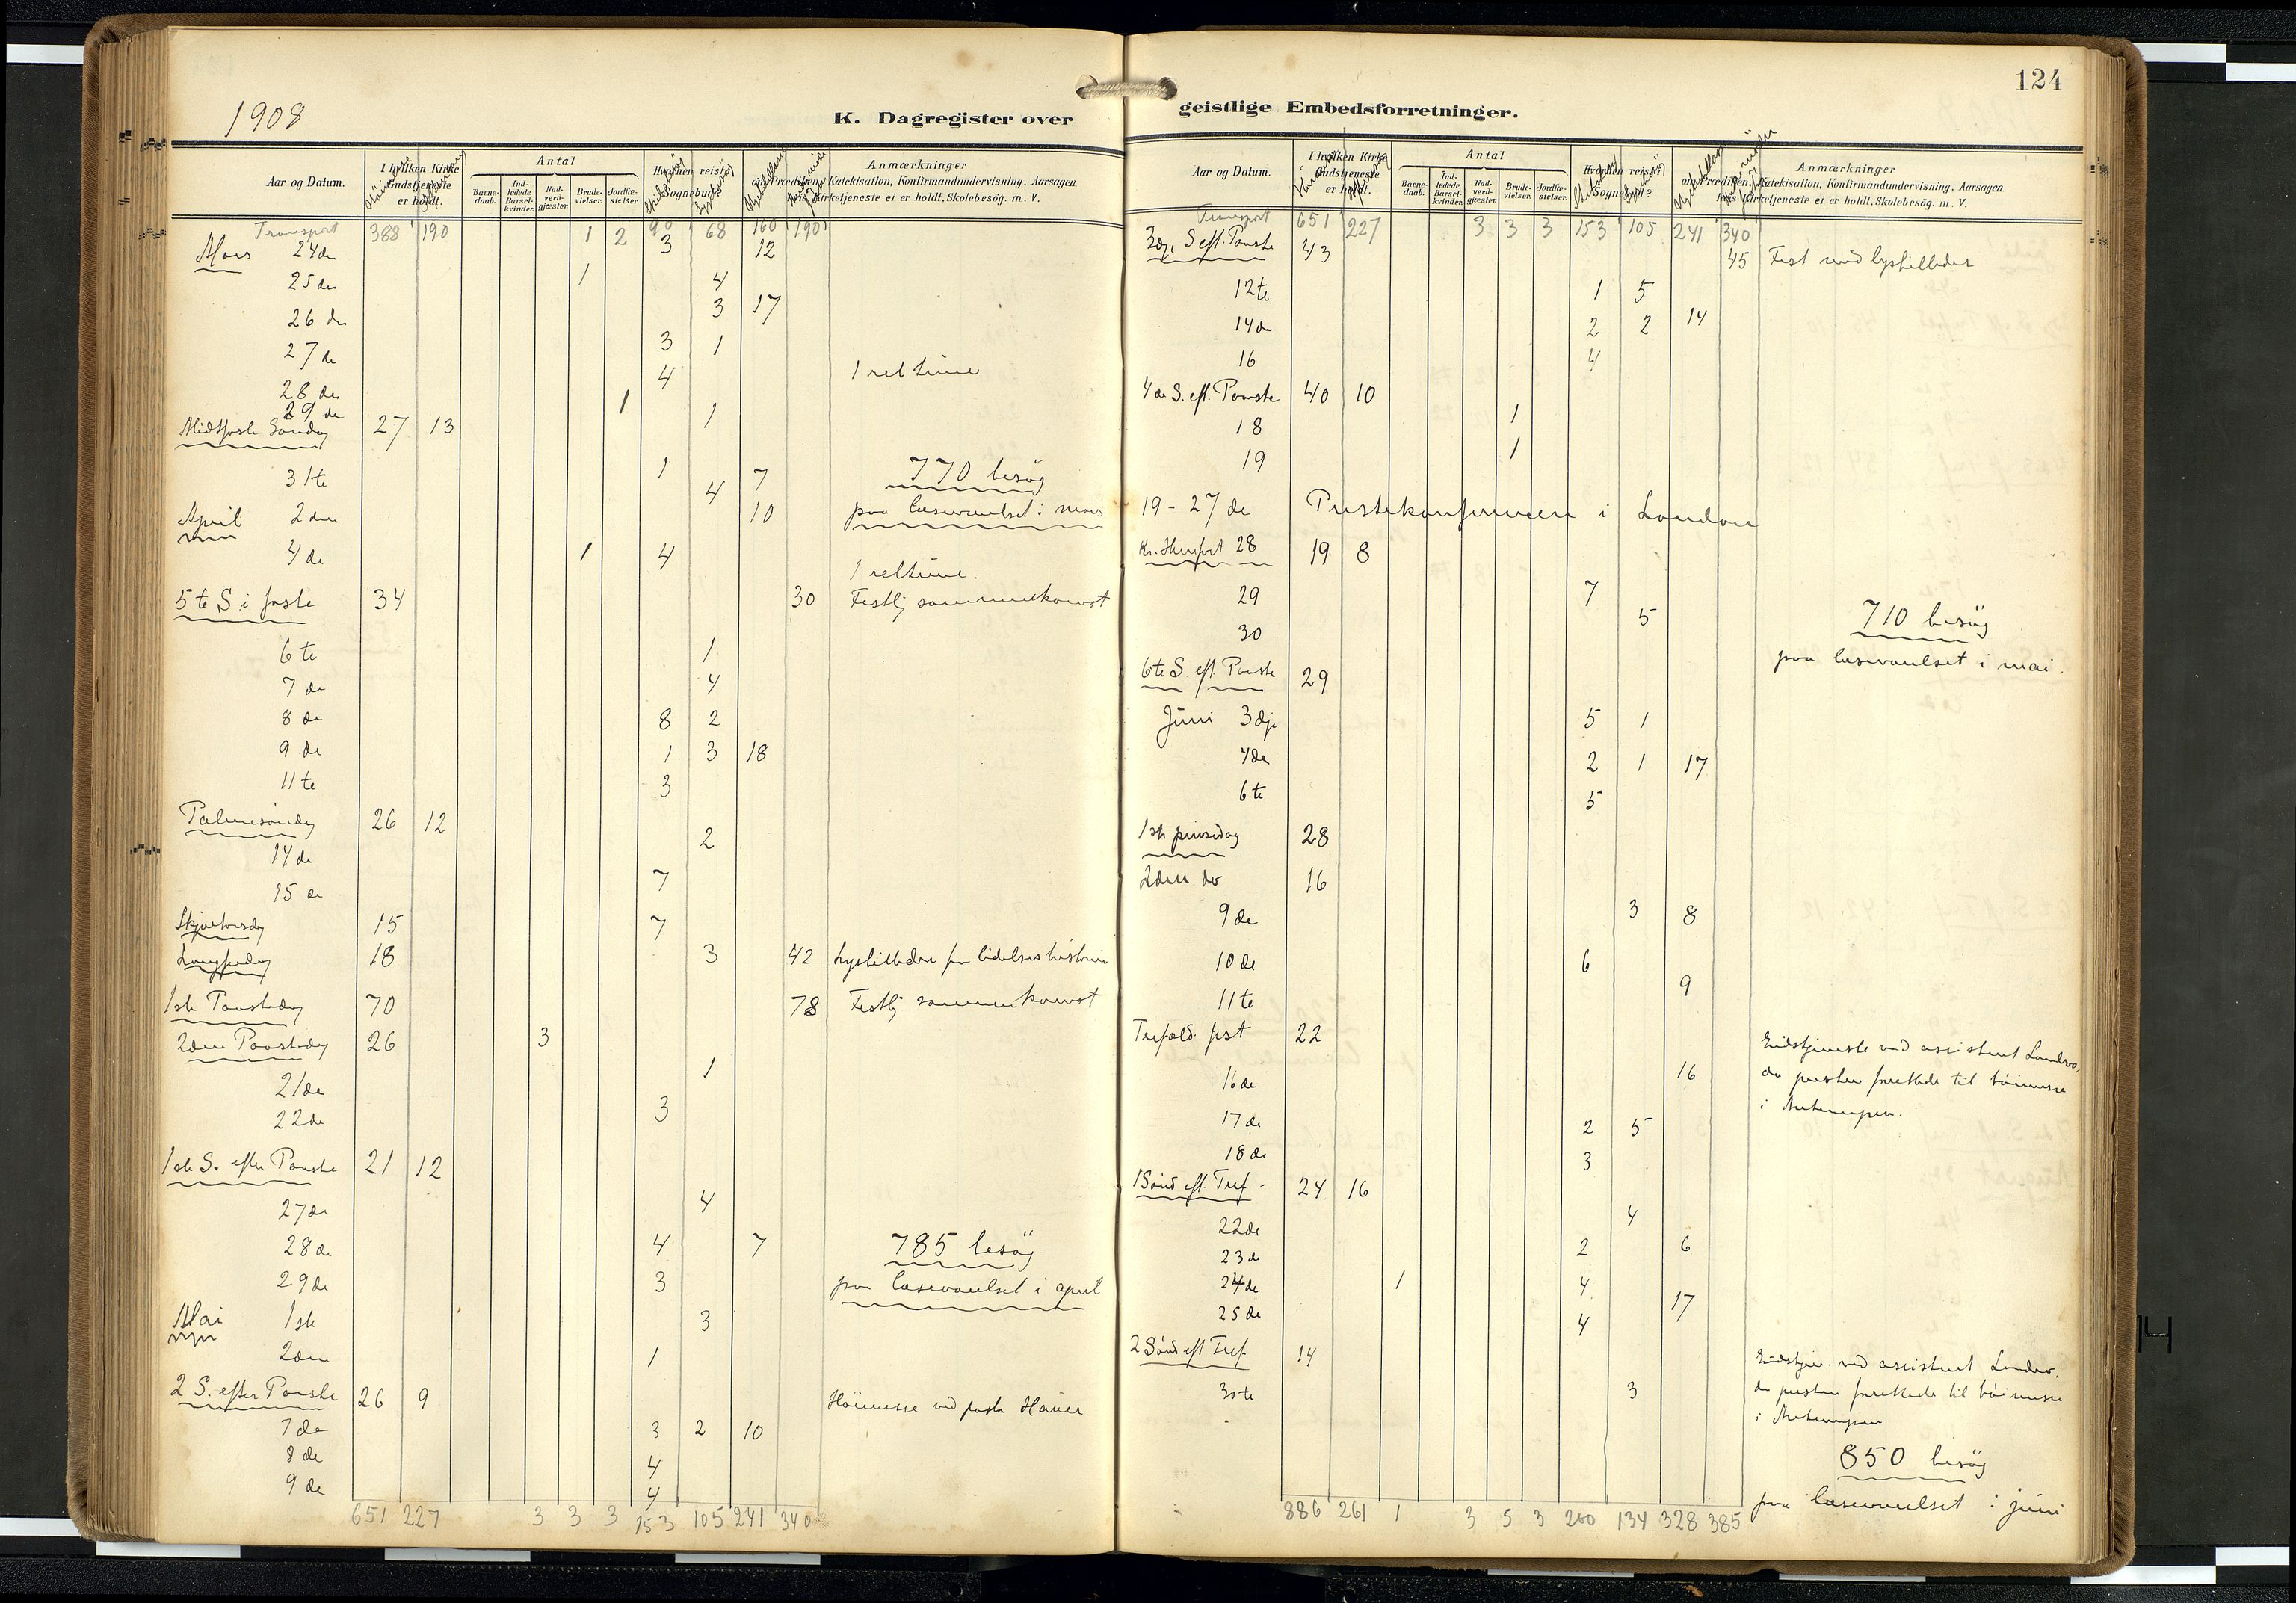 1908
K. Dagregister over
Aar og Datum.
I hvilken Kirke Gudstjeneste er holdt.
Antal
Barne-daab.
Ind-ledede Barsel-kvinder.
Nad-verd-gjæster.
Brude-vielser.
Jordfæ-stelser.
Hvorhen reist i Sognebud?
Anmærkninger
om Prædiken, Katekisation, Konfirmandundervisning, Aarsagen
hvis Kirketjeneste ei er holdt, Skolebesög. m. V.
Transport 388 190 1 2 90 68 160 190
Mars 24de 3 12
25de 1 4
26de 3 17
27de 3 1
28de 4 1 reltime
29de 1 1
Midtfaste Søndag 27 13
31te 1 7 770 besög
April 2den 4 10 paa læseværelset i mars
4de 1 4 1 reltime.
5te S i faste 34 30 Festlig sammenkomst
6te 1
7de 4
8de 8 2
9de 1 3 18
11te 3
Palmesøndag 26 12
14de 2
15de 7
Skjærtorsdag 15 7
Langfredag 18 3 42 Lysbilleder fra lidelseshistorien
1ste Paaskedag 70 78 Festlig sammenkomst
2den Paaskedag 26 3
21de 1
22de 3
1ste S. efter Paaske 21 12
27de 4
28de 4 7 785 besög
29de 3 paa læseværelset i april
Mai 1ste 3
2den 1
2 S. efter Paaske 26 9 Höimesse ved pastor
7de 3 2 10
8de 4
9de 4
651 227 3 3 3 153 105 241 340
124
geistlige Embedsforretninger.
Aar og Datum.
I hvilken Kirke Gudstjeneste er holdt.
Antal
Barne-daab.
Ind-ledede Barsel-kvinder.
Nad-verd-gjæster.
Brude-vielser.
Jordfæ-stelser.
Hvorhen reist i Sognebud?
Anmærkninger
om Prædiken, Katekisation, Konfirmandundervisning, Aarsagen
hvis Kirketjeneste ei er holdt, Skolebesög. m. V.
Transport 651 227 3 3 3 153 105 241 340
3dje S eft. Paaske 43 45 Fest med lysbilleder
12te 1 5
14de 2 2 14
16 4
4de S. eft. Paaske 40 10
18 1
19 1
19-27de Prestekonferencen i London
Kr. Himfart 28 19 8
29 7
30 5 710 besög
paa læseværelset i mai.
6te S. eft. Paaske 29
Juni 3dje 5 1
4de 2 1 17
6te 5
1ste pinsedag 28
2den do 16
9de 3 8
10de 6
11te 9
Trefold. fest 22 Gudstjeneste ved assistent
16de 16 da presten forrettede til höimesse
i Antwerpen.
17de 2 5
18de 3
1 Sönd eft. Tref. 24 16
22de 4
23de 2 6
24de 1 4
25de 4 17
2 Sönd eft Tref 14 Gudstjen. ved assistent
30te 3 da presten forrettede til höimesse
i Antwerpen
850 besög
paa læseværelset i juni
886 261 1 3 5 3 200 134 328 385